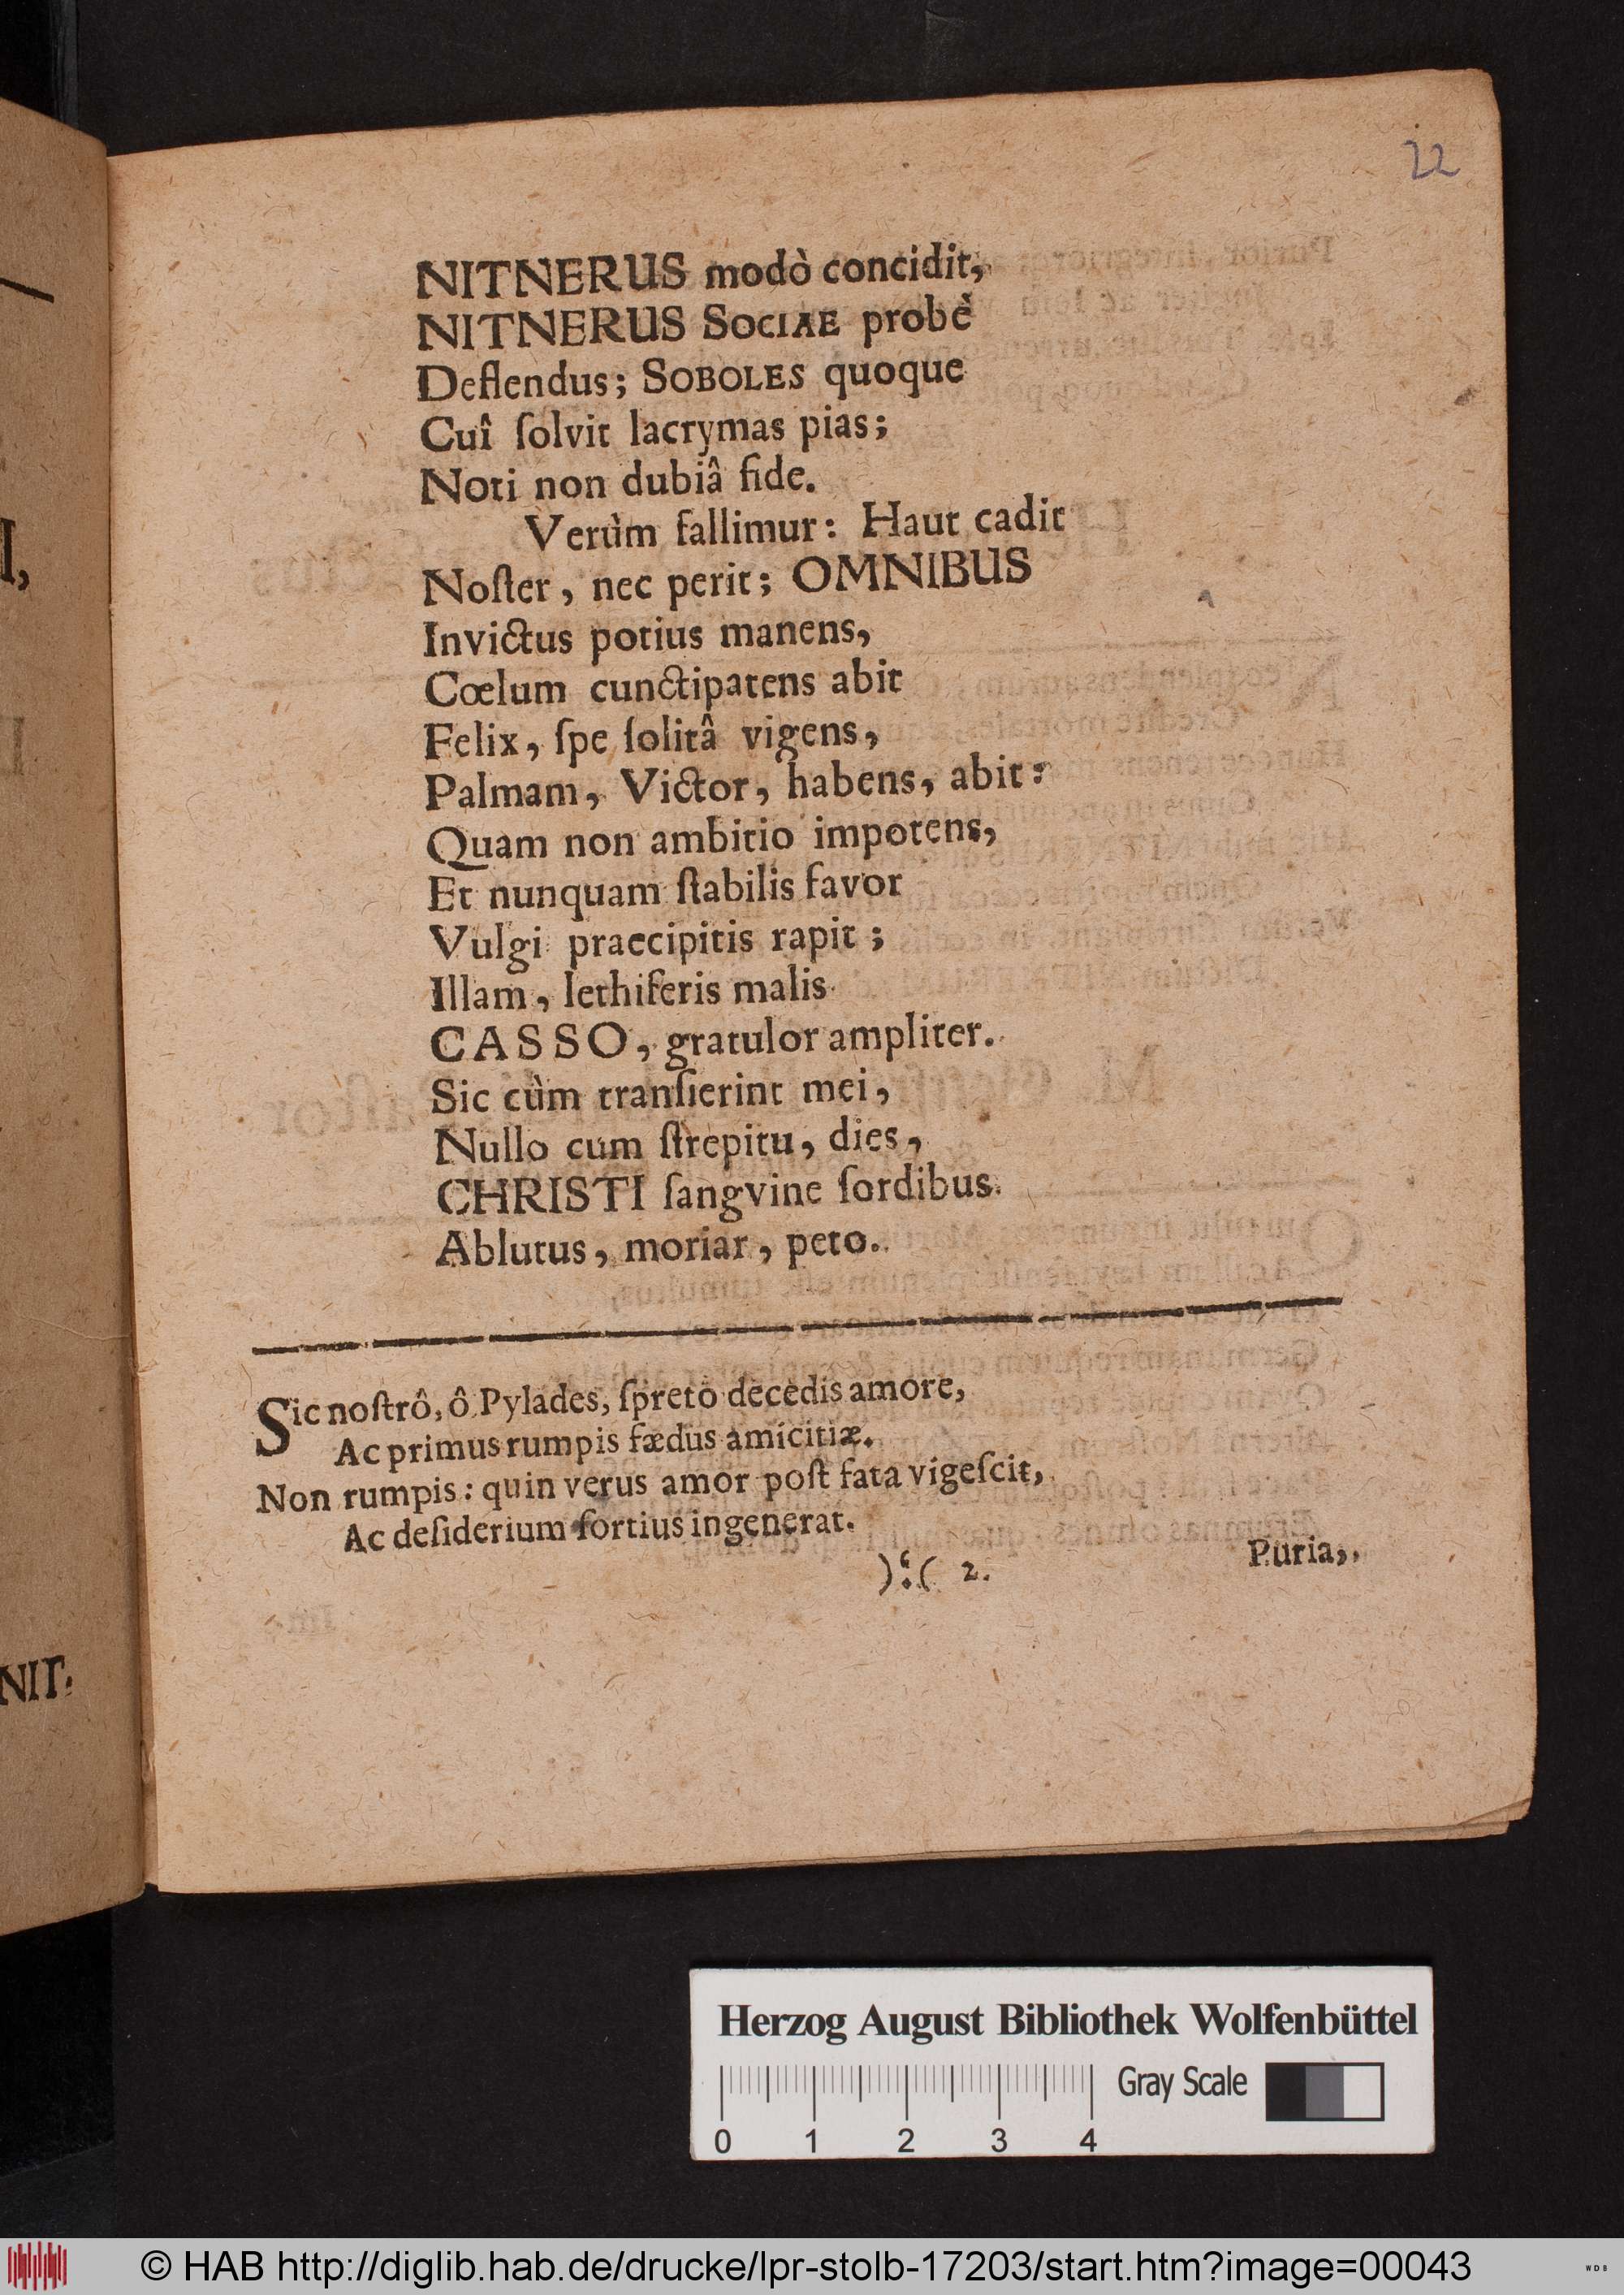 22
NITNERUS modò concidit,
NITNERUS SOCIAE probè
Deflendus; SOBOLES quoque
Cuî ſolvit lacrymas pias;
Noti non dubiâ fide.
Verùm fallimur: Haut cadit
Noſter, nec perit; OMNIBUS
Invictus potius manens,
Cœlum cunctipatens abit
Felix, ſpe ſolitâ vigens,
Palmam, Victor, habens, abit:
Quam non ambitio impotens,
Et nunquam ſtabilis favor
Vulgi praecipitis rapit;
Illam, lethiferis malis
CASSO, gratulor ampliter.
Sic cùm tranſierint mei,
Nullo cum ſtrepitu, dies,
CHRISTI ſangvine ſordibus
Ablutus, moriar, peto.
Sic noſtrô, ô Pylades, ſpreto decedis amore,
Ac primus rumpis fædus amicitiæ.
Non rumpis: quin verus amor poſt fata vigeſcit,
Ac deſiderium fortius ingenerat.
):( 2.
Puria,
I,
NIT.
Herzog August Bibliothek Wolfenbüttel
Gray Scale
0 1 2 3 4
© HAB http://diglib.hab.de/drucke/lpr-stolb-17203/start.htm?image=00043
WDB